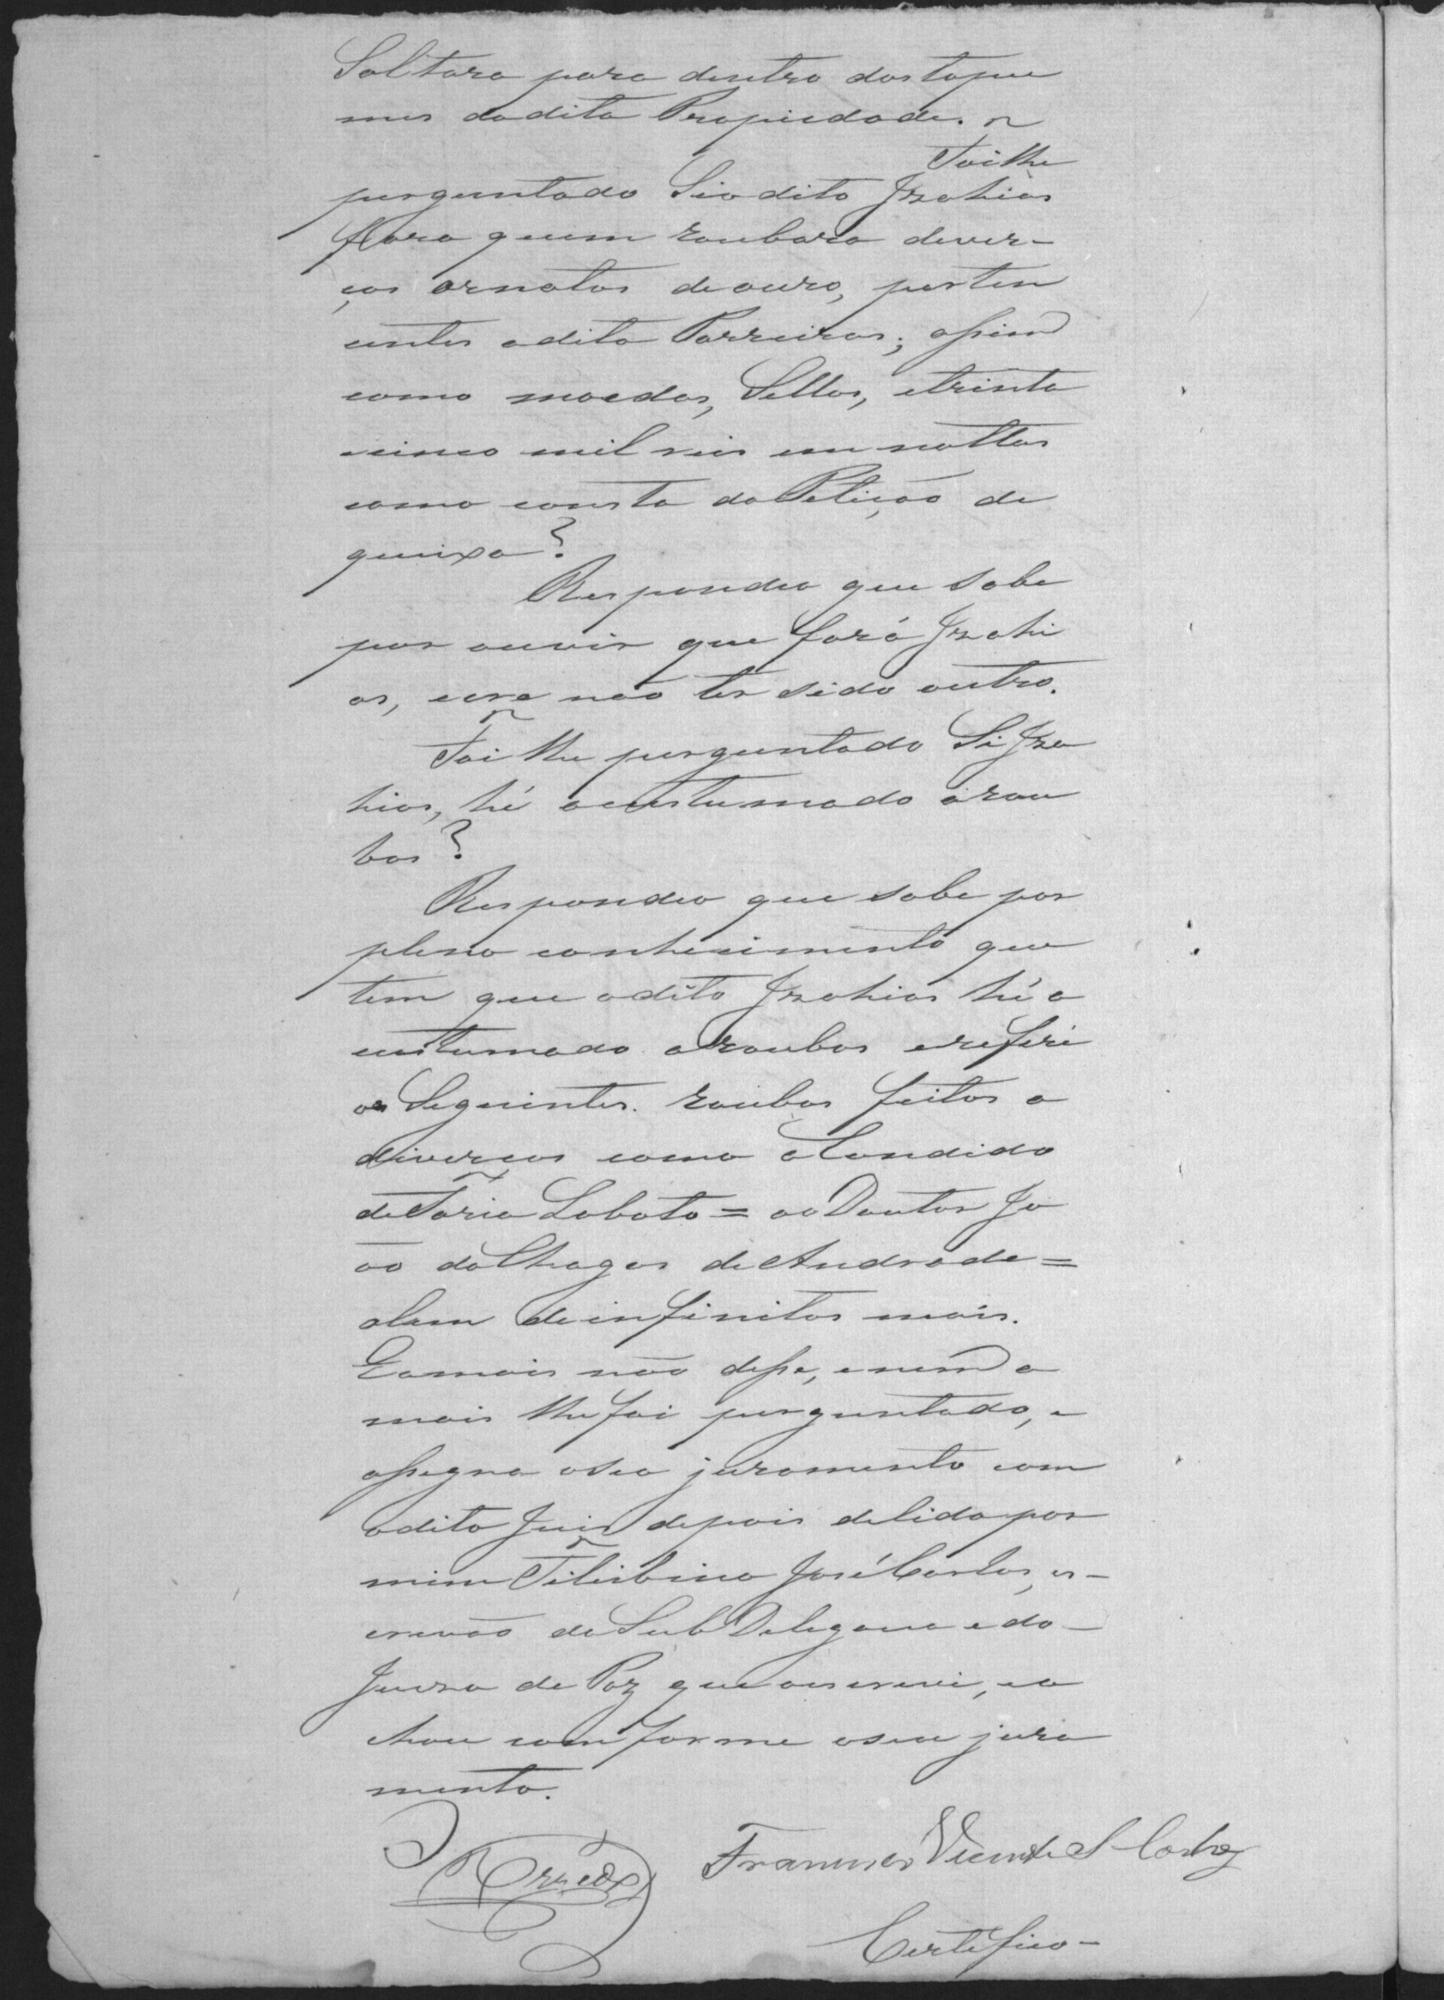 Saltara para dentro dos tapu
mes da dita Propriedade.
Foi lhe
perguntado Si o dito Izahias
fora quem roubara diver-
ços ornatos de ouro, perten
centes a dita Parreiras; assim
como moedas, Sellos, e trinta
e cinco mil reis em nottas
como consta da Petição de
queixa?
Respondeo que sabe
por ouvir que fora Izahi
as, e cre não ter sido outro.
Foi lhe perguntado Si Iza
hias, hé acustumado a rou
bos?
Respondeo que sabe por
pleno conhecimento que
tem que o dito Izahias hé a
custumado a roubos e refire
os Seguintes roubos feitos a
diverços como a Candido
de Faria Lobato = ao Doutor Jo
ao das Chagas de Andrade =
alem de infinitos mais.
E a mais não disse, e nem o
mais lhe foi perguntado, e
assigna o seo juramento com
o dito Juis depois de lido por
mim Felisbino José Carlos, es-
crivão da Sub Delegacia e do
Juizo de Paz que o escrevi, e a
chou comforme o seu jura
mento.
Francisco Vicente
Certifico-